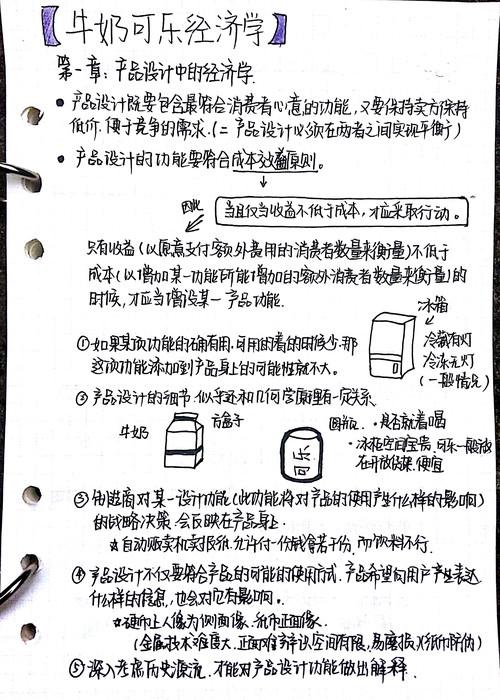 【牛奶可乐经济学】
第一章:产品设计中的经济学.
• 产品设计既要包含最符合消费者心意的功能,又要保持卖方保持
低价.便于竞争的需求.(= 产品设计必须在两者之间实现平衡)
• 产品设计的功能要符合成本效益原则。
↓
因此
当且仅当收益不低于成本,才应采取行动。
只有收益(以愿意支付额外费用的消费者数量来衡量)不低于
成本(以增加某一功能所能增加的额外消费者数量来衡量)的
时候,才应当增设某一产品功能.
冰箱
冷藏有灯
冷冻无灯
(一般情况)
①如果某项功能的确有用,可用的着的时候少.那
这项功能添加到产品身上的可能性就不大。
② 产品设计的细节.似乎还和几何学原理有一定关系
牛奶
方盒子
可乐
圆瓶. • 是否就着喝
• 冰柜空间宝贵.可乐一般放
在开放货架.便宜
③ 制造商对某一设计功能(此功能将对产品的使用产生什么样的影响)
的战略决策.会反映在产品身上.
☆ 自动贩卖机卖报纸.允许付一份钱拿若干份,而饮料不行.
④ 产品设计不仅要符合产品的可能的使用方式.产品希望向用户产生表达
什么样的信息,也会对它有影响。
☆硬币上人像为侧面像.纸币正面像.
(金属技术难度大.正面难辨识空间有限,易磨损
⑤ 深入考虑历史源流.才能对产品设计功能做出解释.